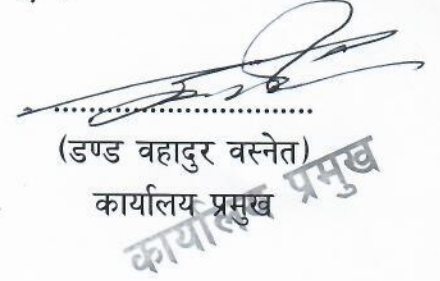 ....................................
(डण्ड वहादुर वस्नेत)
कार्यालय प्रमुख
कार्यालय प्रमुख